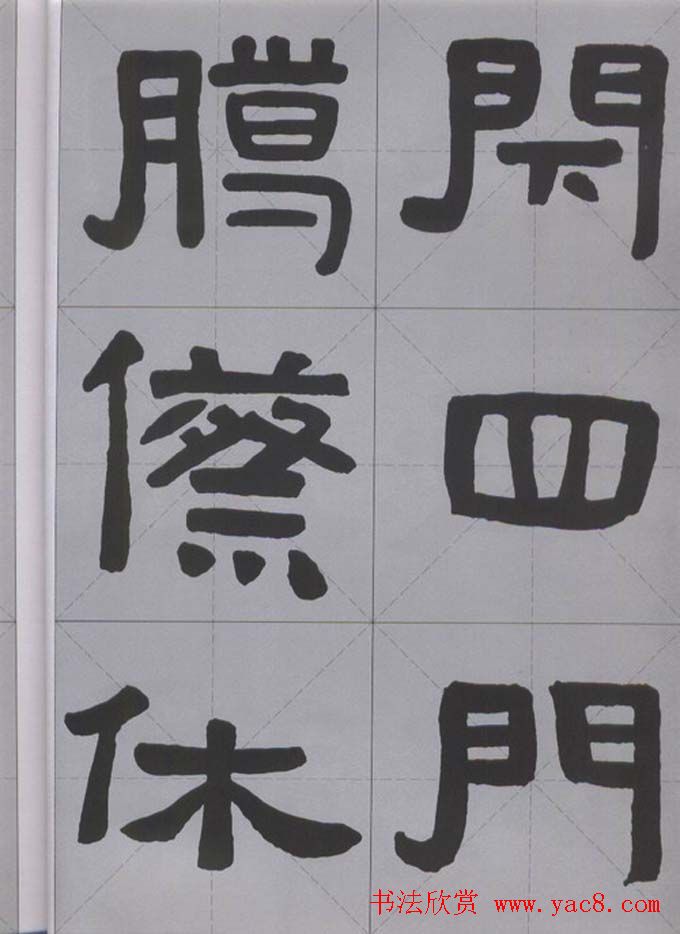 閇四門
臈傺休
书法欣赏 www.yac8.com